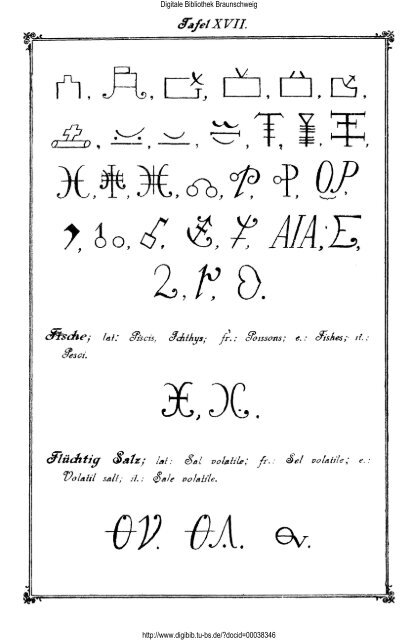 Digitale Bibliothek Braunschweig
Tafel XVII.
O.P.
AIA; E,
2, r,
Fische; lat: Piscis, Ichthys; fr.: Poissons; e.: Fishes; it.:
Pesci.
Flüchtig Salz; lat: Sal volatile; fr.: Sel volatile; e.:
Volatil salt; it.: Sale volatile.
http://www.digibib.tu-bs.de/?docid=00038346